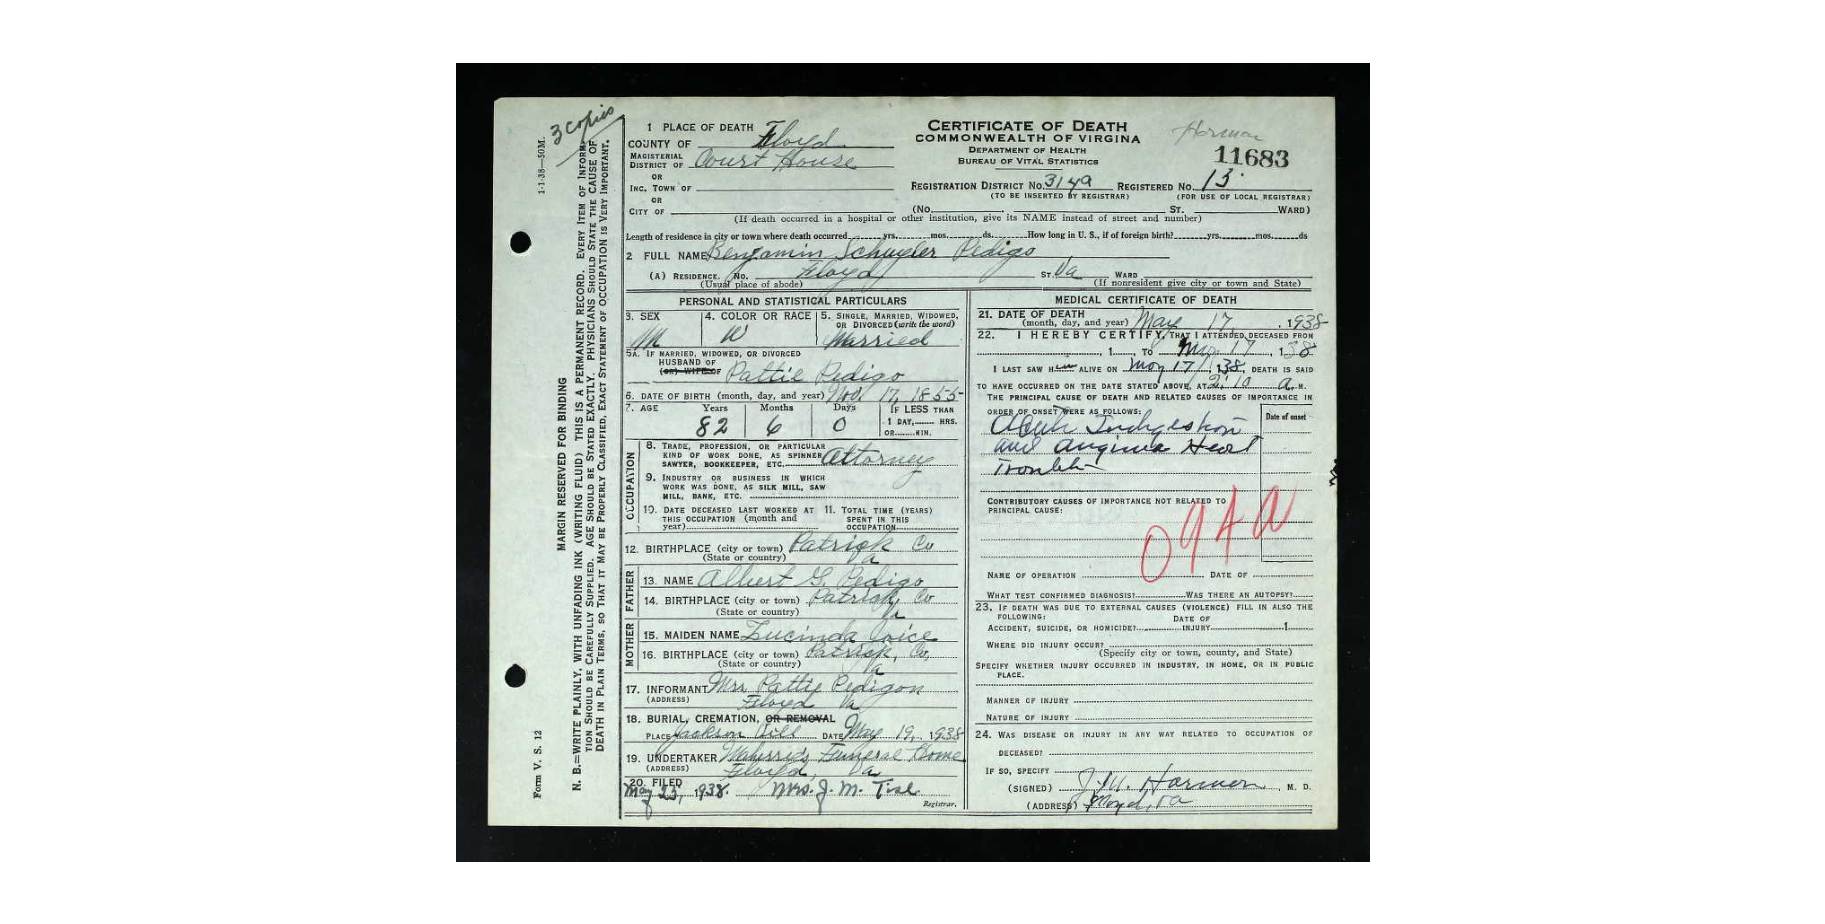 3 copies
1-1-38—50M.
MARGIN RESERVED FOR BINDING
N. B.—WRITE PLAINLY, WITH UNFADING INK (WRITING FLUID) THIS IS A PERMANENT RECORD. EVERY ITEM OF INFORMA-
TION SHOULD BE CAREFULLY SUPPLIED. AGE SHOULD BE STATED EXACTLY. PHYSICIANS SHOULD STATE THE CAUSE OF
DEATH IN PLAIN TERMS, SO THAT IT MAY BE PROPERLY CLASSIFIED, EXACT STATEMENT OF OCCUPATION IS VERY IMPORTANT.
Form V. S. 12
CERTIFICATE OF DEATH
COMMONWEALTH OF VIRGINA
DEPARTMENT OF HEALTH
BUREAU OF VITAL STATISTICS
Harman
11683
1 PLACE OF DEATH
COUNTY OF Floyd
MAGISTERIAL DISTRICT OF Court House
OR
INC. TOWN OF
OR
CITY OF
REGISTRATION DISTRICT NO. 3149 REGISTERED NO. 13
(TO BE INSERTED BY REGISTRAR) (FOR USE OF LOCAL REGISTRAR)
(No. ST. WARD)
(If death occurred in a hospital or other institution, give its NAME instead of street and number)
Length of residence in city or town where death occurred yrs. mos. ds. How long in U. S., if of foreign birth? yrs. mos. ds
2 FULL NAME Benjamin Schuyler Pedigo
(A) RESIDENCE. No. Floyd ST. Va WARD
(Usual place of abode) (If nonresident give city or town and State)
PERSONAL AND STATISTICAL PARTICULARS
3. SEX M
4. COLOR OR RACE W
5. SINGLE, MARRIED, WIDOWED, OR DIVORCED (write the word) Married
5A. IF MARRIED, WIDOWED, OR DIVORCED
HUSBAND OF
(OR) WIFE OF Pattie Pedigo
6. DATE OF BIRTH (month, day, and year) Nov. 17, 1855
7. AGE Years 82 Months 6 Days 0 IF LESS THAN 1 DAY, HRS. OR MIN.
OCCUPATION
8. TRADE, PROFESSION, OR PARTICULAR
KIND OF WORK DONE, AS SPINNER
SAWYER, BOOKKEEPER, ETC. Attorney
9. INDUSTRY OR BUSINESS IN WHICH
WORK WAS DONE, AS SILK MILL, SAW
MILL, BANK, ETC.
10. DATE DECEASED LAST WORKED AT
THIS OCCUPATION (month and
year)
11. TOTAL TIME (YEARS)
SPENT IN THIS
OCCUPATION
12. BIRTHPLACE (city or town) Patrick Co
(State or country) Va
FATHER
13. NAME Albert G. Pedigo
14. BIRTHPLACE (city or town) Patrick, Co
(State or country) Va
MOTHER
15. MAIDEN NAME Lucinda Joice
16. BIRTHPLACE (city or town) Patrick, Co,
(State or country) Va
17. INFORMANT Mrs Pattie Pedigon
(ADDRESS) Floyd Va
18. BURIAL, CREMATION, OR REMOVAL
PLACE Jackson Vill DATE May 19, 1938
19. UNDERTAKER Funeral Home
(ADDRESS) Floyd, Va
20. FILED
May 23, 1938. Mrs. J. M. Tise
Registrar.
MEDICAL CERTIFICATE OF DEATH
21. DATE OF DEATH
(month, day, and year) May 17, 1938
22. I HEREBY CERTIFY, THAT I ATTENDED DECEASED FROM
, 1 , TO May 17, 138
I LAST SAW HIM ALIVE ON May 17, 138, DEATH IS SAID
TO HAVE OCCURRED ON THE DATE STATED ABOVE, AT 2:10 a. M.
THE PRINCIPAL CAUSE OF DEATH AND RELATED CAUSES OF IMPORTANCE IN
ORDER OF ONSET WERE AS FOLLOWS: Date of onset
Acute Indigestion
and Angina Heart
Trouble
CONTRIBUTORY CAUSES OF IMPORTANCE NOT RELATED TO
PRINCIPAL CAUSE:
094a
NAME OF OPERATION DATE OF
WHAT TEST CONFIRMED DIAGNOSIS? WAS THERE AN AUTOPSY?
23. IF DEATH WAS DUE TO EXTERNAL CAUSES (VIOLENCE) FILL IN ALSO THE
FOLLOWING:
ACCIDENT, SUICIDE, OR HOMICIDE? DATE OF INJURY 1
WHERE DID INJURY OCCUR?
(Specify city or town, county, and State)
SPECIFY WHETHER INJURY OCCURRED IN INDUSTRY, IN HOME, OR IN PUBLIC
PLACE.
MANNER OF INJURY
NATURE OF INJURY
24. WAS DISEASE OR INJURY IN ANY WAY RELATED TO OCCUPATION OF
DECEASED?
IF SO, SPECIFY
(SIGNED) J. M. Harmon, M. D.
(ADDRESS) Floyd, Va